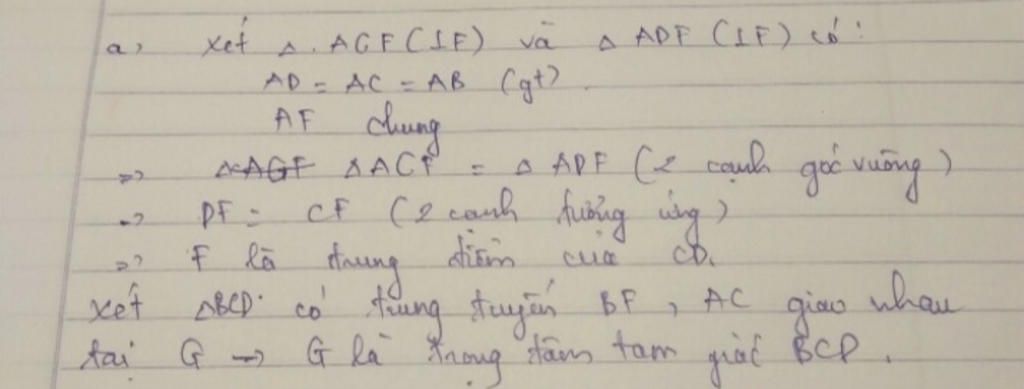 a, xét Δ.ACF(⊥F) và Δ ADF (⊥F) có:
AD = AC = AB (gt)
AF chung
=> Δ ACF = Δ ADF (2 cạnh góc vuông)
=> DF = CF (2 cạnh tương ứng)
=> F là trung điểm của CD.
xét ΔBCD có trung tuyến BF, AC giao nhau
tại G -> G là trọng tâm tam giác BCD.